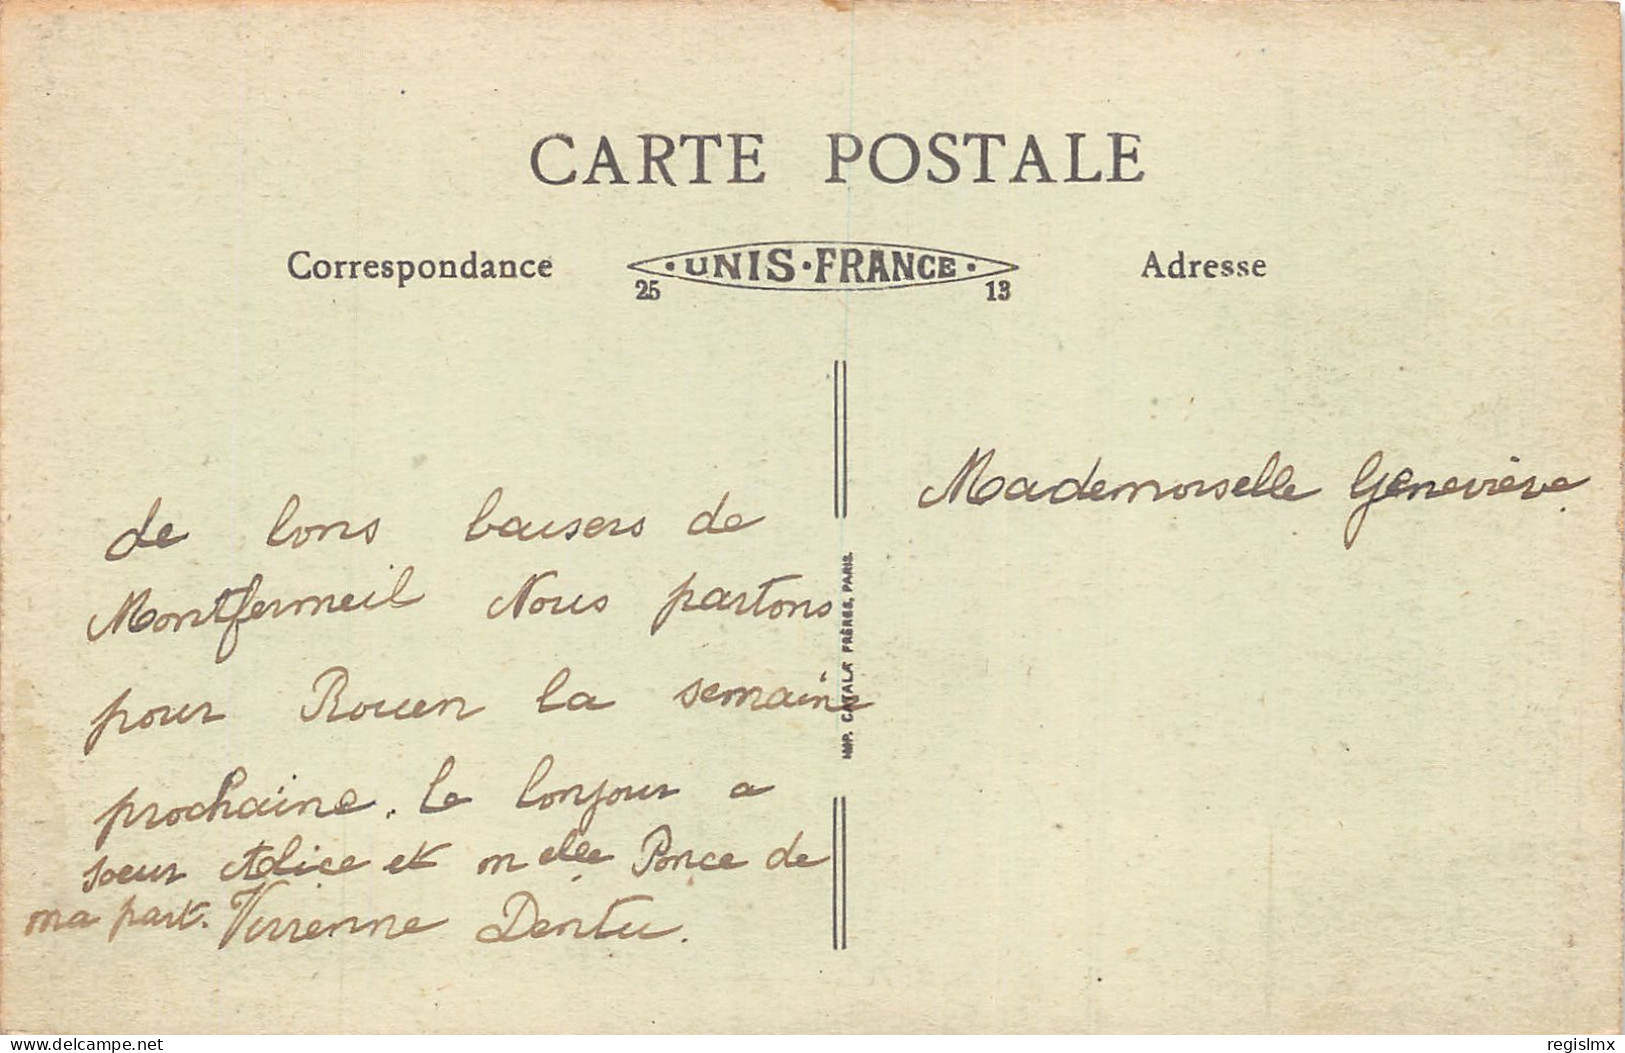 CARTE POSTALE
Correspondance
UNIS-FRANCE
25 13
Adresse
de bons baisers de
Montfermeil Nous partons
pour Rouen la semaine
prochaine. le bonjour a
soeur Alice et melle Ponce de
ma part. Vivienne Dentu.
IMP. CATALA FRÈRES, PARIS.
Mademoiselle Geneviève.
delcampe.net
regislmx